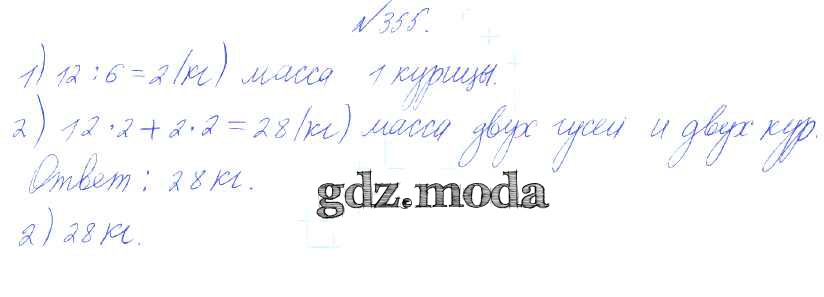 №355.
1) 12:6=2(кг) масса 1 курицы.
2) 12·2+2·2=28(кг) масса двух гусей и двух кур.
Ответ: 28кг.
gdz.moda
2) 28кг.